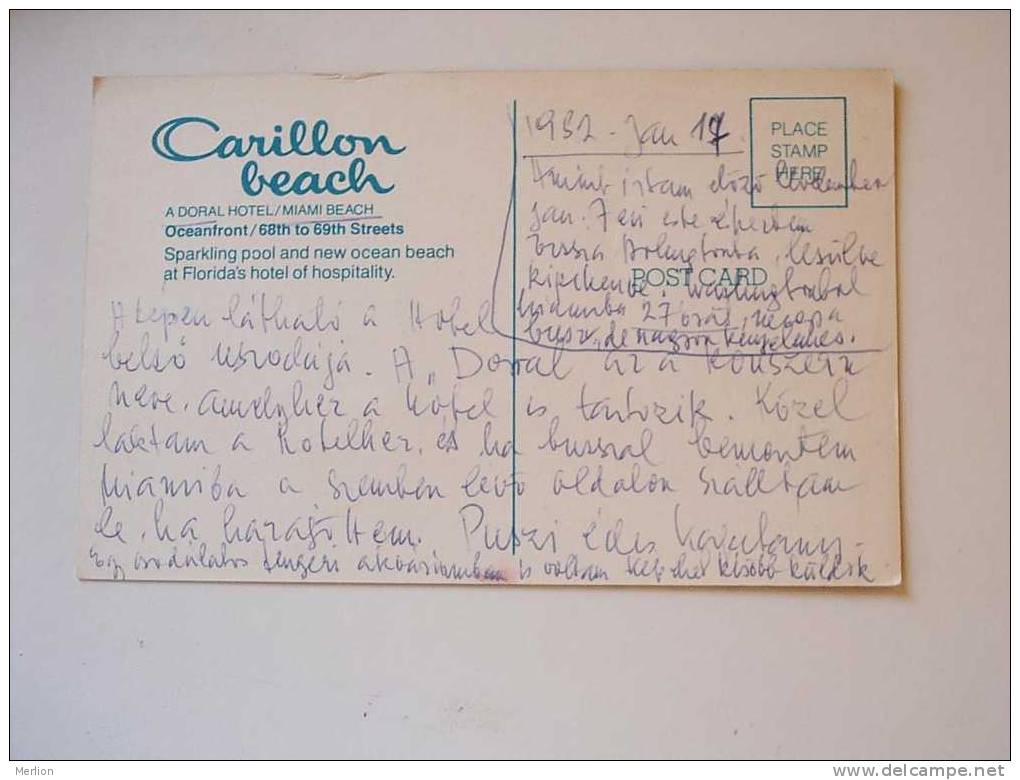 Carillon
beach
A DORAL HOTEL/MIAMI BEACH
Oceanfront/68th to 69th Streets
Sparkling pool and new ocean beach
at Florida's hotel of hospitality.
PLACE
STAMP
HERE
POST CARD
1982 - Jan 17.
Amint írtam előző
jan. 7 én este
vissza lesülve
kipihenve. Washingtonból
Miamiba 27 órás
busz, de nagyon kényelmes.
A képen látható a Hotel
belső uszodája. A "Doral az a konszern
neve, amelyhez a hotel is tartozik. Közel
laktam a hotelhez, és ha busszal bementem
Miamiba a szemben lévő oldalon szálltam
le, ha hazajöttem. Puszi édes
Egy csodálatos tengeri akváriumban is voltam képeket később küldök
Merlion
delcampe.net